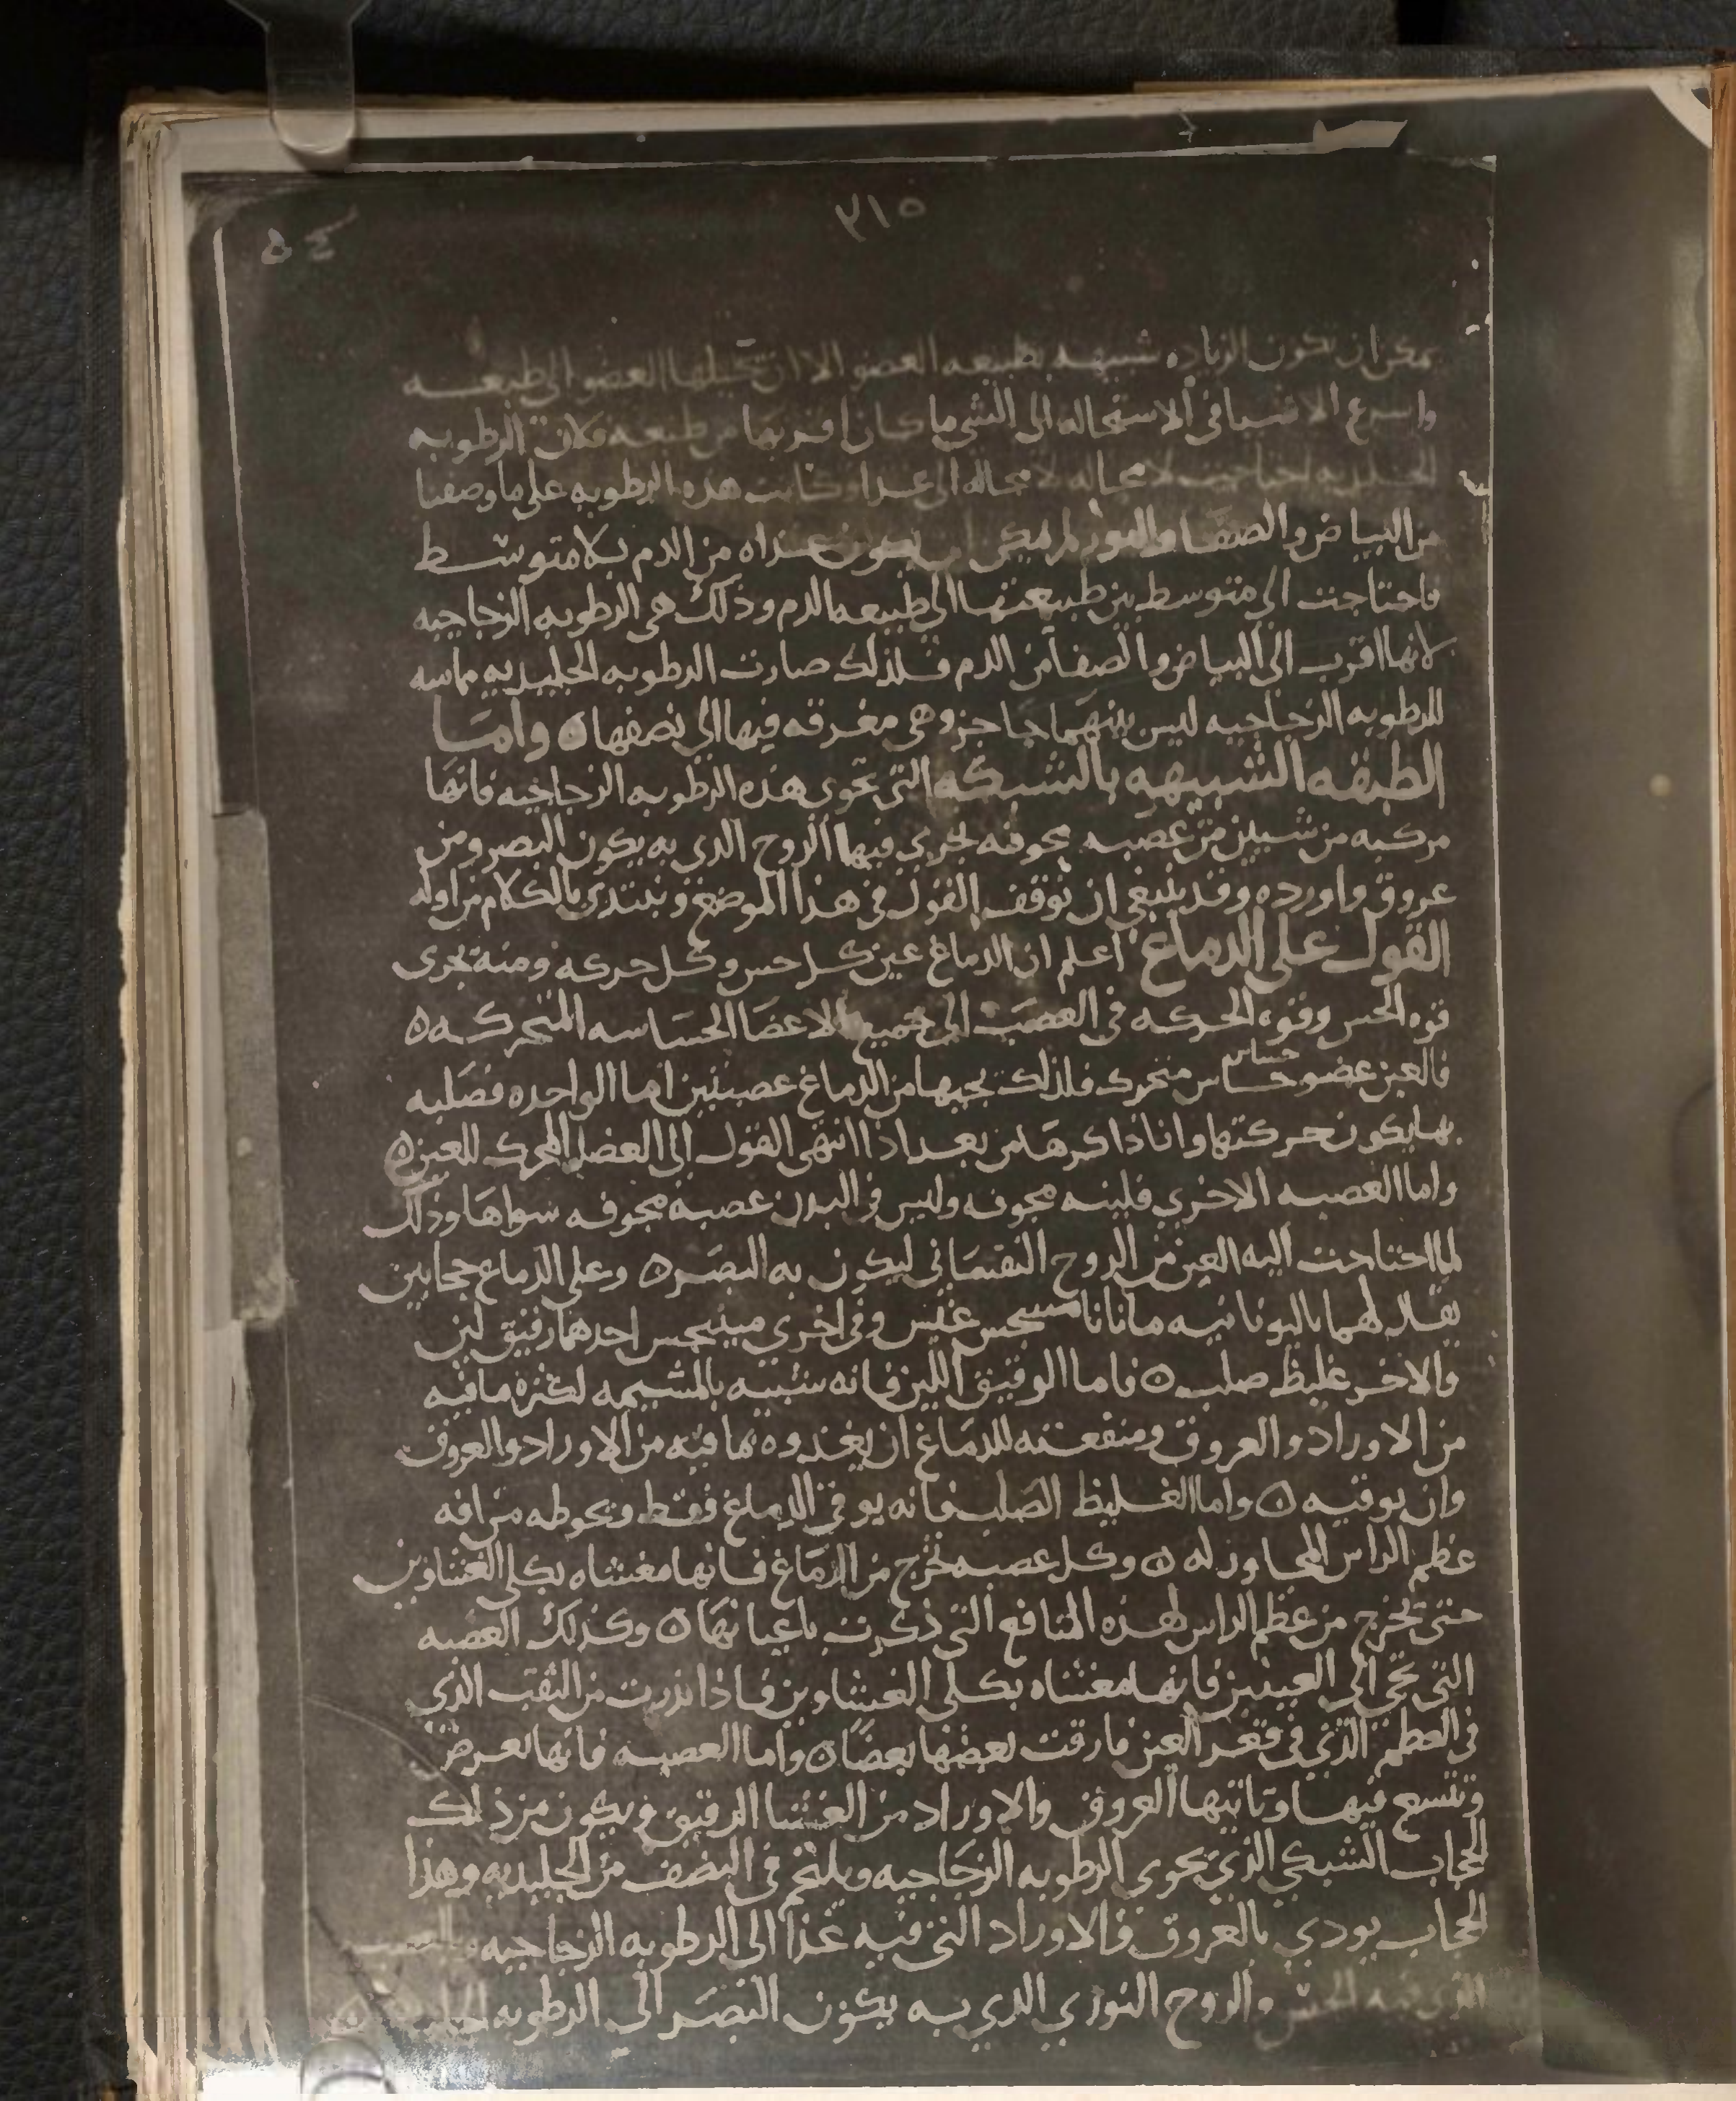 ٣١٥
يمكن ان تكون الزياده شبيهه بطبيعه العضو الا ان تحيلها العضو الى طبيعته
واسرع الاشيا في الاستحاله الى الشي ما كان اقربها من طبيعه فلان الرطوبه
الجليديه احتاجت لا محاله لا محاله الى غذا وكانت هذه الرطوبه على ما وصفنا
من البياض والصفا والنور لم يمكن ان يكون غذاه من الدم بلا متوسط
فاحتاجت الى متوسط بين طبيعتها الى طبيعه الدم وذلك هي الرطوبه الزجاجيه
لانها اقرب الى البياض والصفا من الدم فلذلك صارت الرطوبه الجليديه مماسه
للرطوبه الزجاجيه ليس بينهما حاجز وهي مغرقه فيها الى نصفها ه واما
الطبقه الشبيهه بالشبكه التي تحوي هذه الرطوبه الزجاجيه فانها
مركبه من شيين من عصبه مجوفه يجري فيها الروح الذي به يكون البصر ومن
عروق واورده وقد ينبغي ان نوقف القول في هذا الموضع ونبتدي بالكلام من اوله
القول على الدماغ اعلم ان الدماغ عين كل حس وكل حركه ومنه تجري
قوه الحس وقوه الحركه في العصب الى جميع الاعضا الحساسه المتحركه ه
حساس
فالعين عضو حساس متحرك فلذلك يجيها من الدماغ عصبتين اما الواحده فصلبه
بها يكون حركتها وانا ذاكرها من بعد اذا انتهى القول الى العضل المحرك للعين ه
واما العصبه الاخري فلينه مجوفه وليس في البدن عصبه مجوفه سواها وذلك
لما احتاجت اليه العين من الروح النفساني ليكون به البصر ه وعلى الدماغ حجابين
يقال لهما باليونانيه وفي اخري احدهما رقيق لين
والاخر غليظ صلب ه فاما الرقيق اللين فانه شبيه بالمشيمه لكثره ما فيه
من الاوراد والعروق ومنفعته للدماغ ان يغذوه بما فيه من الاوراد والعروق
وان يوقيه ه واما الغليظ الصلب فانه يوقي الدماغ فقط ويحوطه من افه
عظم الراس المجاور له ه وكل عصبه تخرج من الدماغ فانها مغشاه بكلي الغشاوين
حتى تخرج من عظم الراس لهذه المنافع التي ذكرت باعيانها ه وكذلك العصبه
التي تجي الى العينين فانها مغشاه بكلي الغشاوين فاذا ندرت من الثقب الذي
في العظم الذي في قعر العين فارقت بعضها بعضا ه واما العصبه فانها تعرض
وتتسع فيها وتاتيها العروق والاوراد من الغشا الرقيق ويكون من ذلك
الحجاب الشبكي الذي يحوي الرطوبه الزجاجيه ويلتحم في النصف من الجليديه وهذا
الحجاب يودي بالعروق فالاوراد التي فيه غذا الى الرطوبه الزجاجيه
الذي فيه الحس والروح النوري الذي به يكون البصر الى الرطوبه